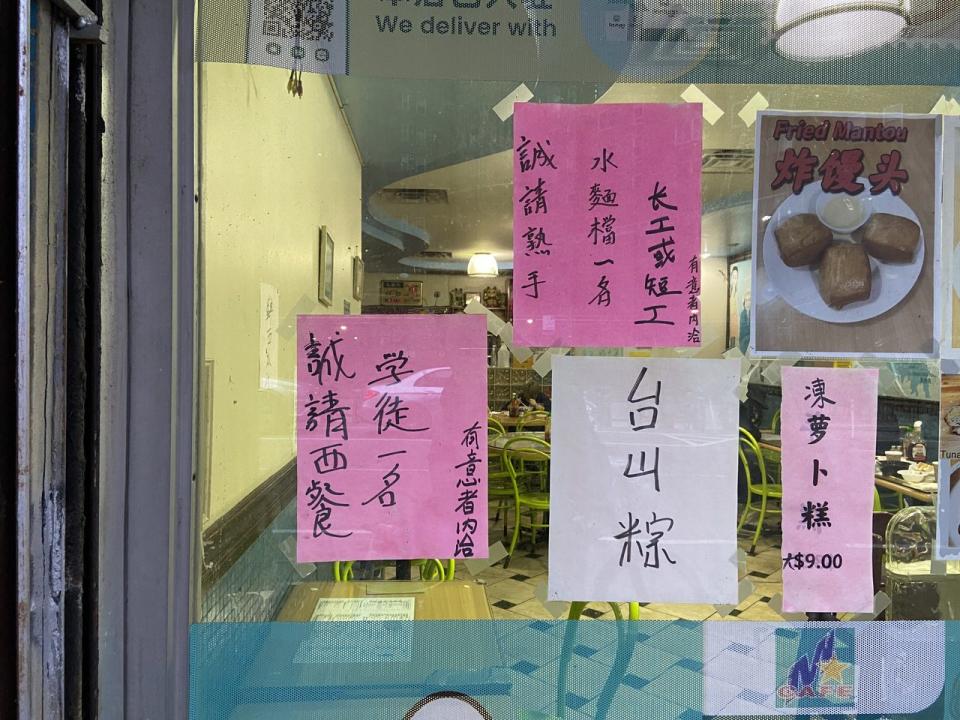 We deliver with
誠請熟手
水麵檔一名
长工或短工
有意者内洽
Fried Mantou
炸馒头
誠請西餐
学徒一名
有意者内洽
台山粽
凍萝卜糕
大$9.00
Tuna
CAFE